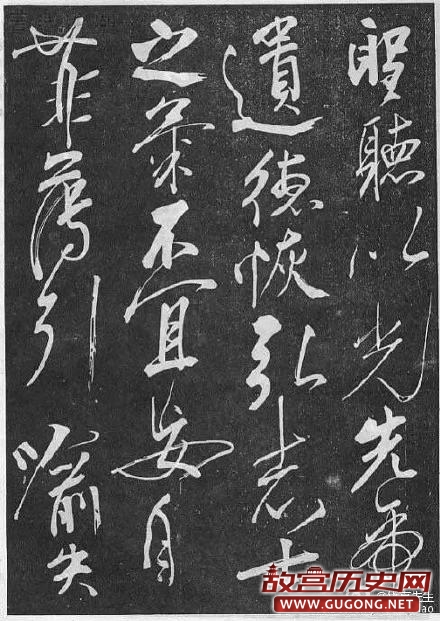 聖聽以光先帝
遺德恢弘志士
之氣不宜妄自
菲薄引喻失
故宫历史网
WWW.GUGONG.NET